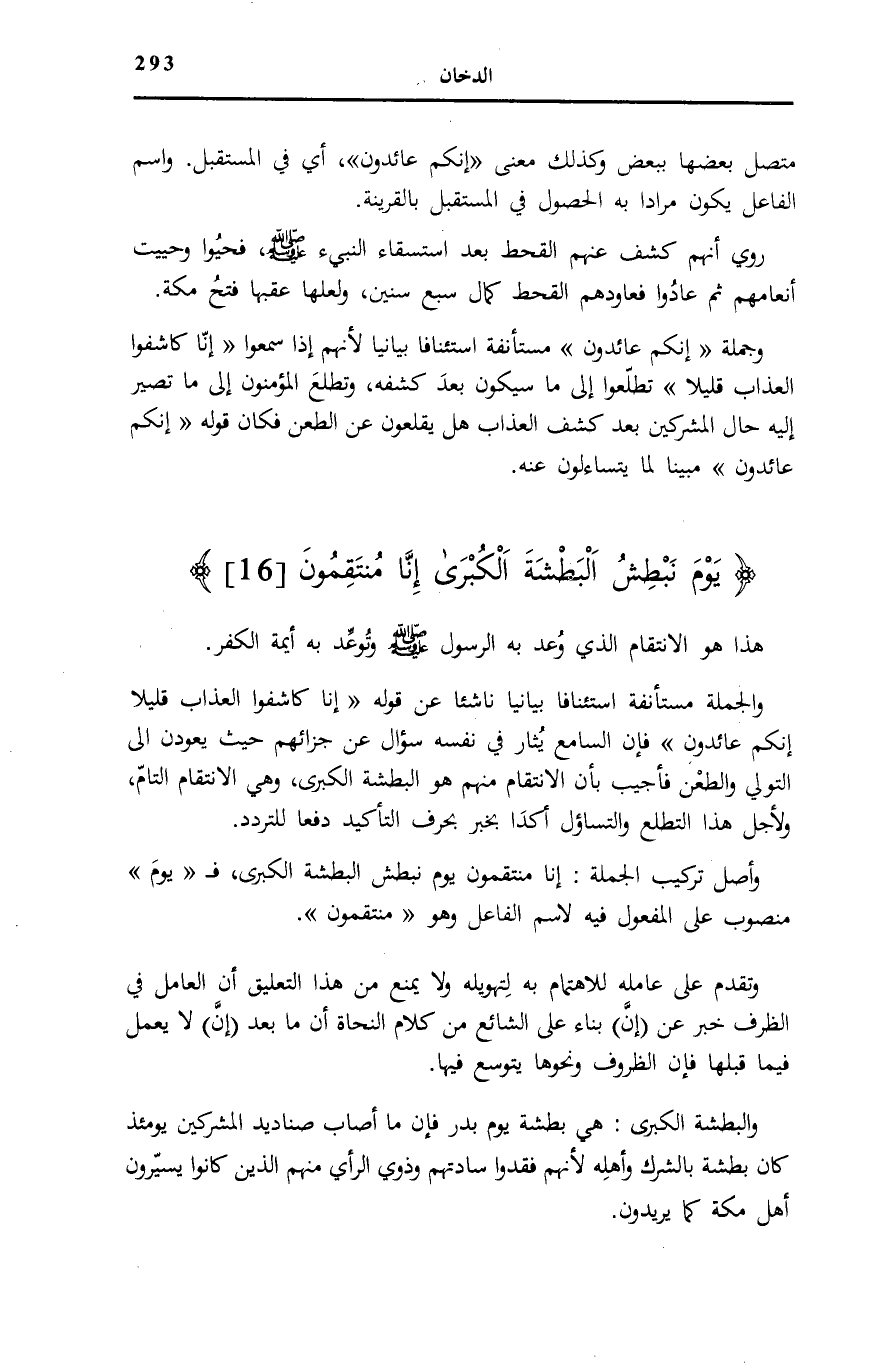 293
الدخان
متصل بعضها ببعض وكذلك معنى «إنكم عائدون»، أي في المستقبل. واسم
الفاعل يكون مرادا به الحصول في المستقبل بالقرينة.
روي أنهم كشف عنهم القحط بعد استسقاء النبيء ﷺ، فحيُوا وحييت
أنعامهم ثم عادُوا فعاودهم القحط كمال سبع سنين، ولعلها عقبها فتحُ مكة.
وجملة « إنكم عائدون » مستأنفة استئنافا بيانيا لأنهم إذا سمعوا « إنّا كاشفوا
العذاب قليلا » تطلّعوا إلى ما سيكون بعدَ كشفه، وتطلعَ المؤمنون إلى ما تصير
إليه حال المشركين بعد كشف العذاب هل يقلعون عن الطعن فكان قوله « إنكم
عائدون » مبينا لما يتساءلون عنه.
﴿ يَوْمَ نَبْطِشُ اَلْبَطْشَةَ اَلْكُبْرَىٰ إِنَّا مُنتَقِمُونَ [16] ﴾
هذا هو الانتقام الذي وُعد به الرسول ﷺ وتُوعِّد به أيمة الكفر.
والجملة مستأنفة استئنافا بيانيا ناشئا عن قوله « إنا كاشفوا العذاب قليلا
إنكم عائدون » فإن السامع يُثار في نفسه سؤال عن جزائهم حيث يعودن الى
التولي والطعْن فأجيب بأن الانتقام منهم هو البطشة الكبرى، وهي الانتقام التامّ،
ولأجل هذا التطلع والتساؤل أكدَا بخبر بحرف التأكيد دفعا للتردد.
وأصل تركيب الجملة : إنا منتقمون يوم نبطش البطشة الكبرى، فـ « يومَ »
منصوب على المفعول فيه لاسم الفاعل وهو « منتقمون ».
وتقدم على عامله للاهتمام به لِتهويله ولا يمنع من هذا التعليق أن العامل في
الظرف خبر عن (إنَّ) بناء على الشائع من كلام النحاة أن ما بعد (إنَّ) لا يعمل
فيما قبلها فإن الظروف ونحوها يتوسع فيها.
والبطشة الكبرى : هي بطشة يوم بدر فإن ما أصاب صناديد المشركين يومئذ
كان بطشة بالشرك وأهلِه لأنهم فقدوا سادتهم وذوي الرأي منهم الذين كانوا يسيّرون
أهل مكة كما يريدون.